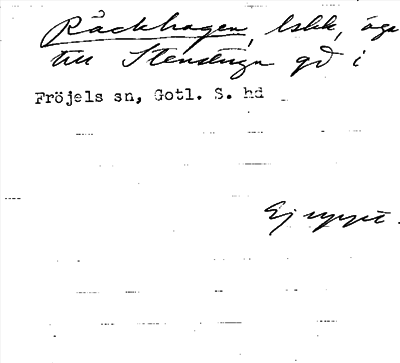 Råckhagen, lskk, äga
till Stenstugu gd i
Fröjels sn, Gotl. S. hd
Ej nytt.